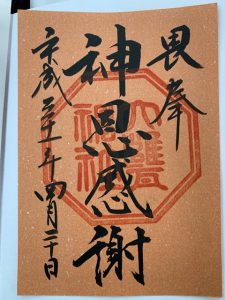 畏奉
神恩感謝
平成三十一年四月二十日